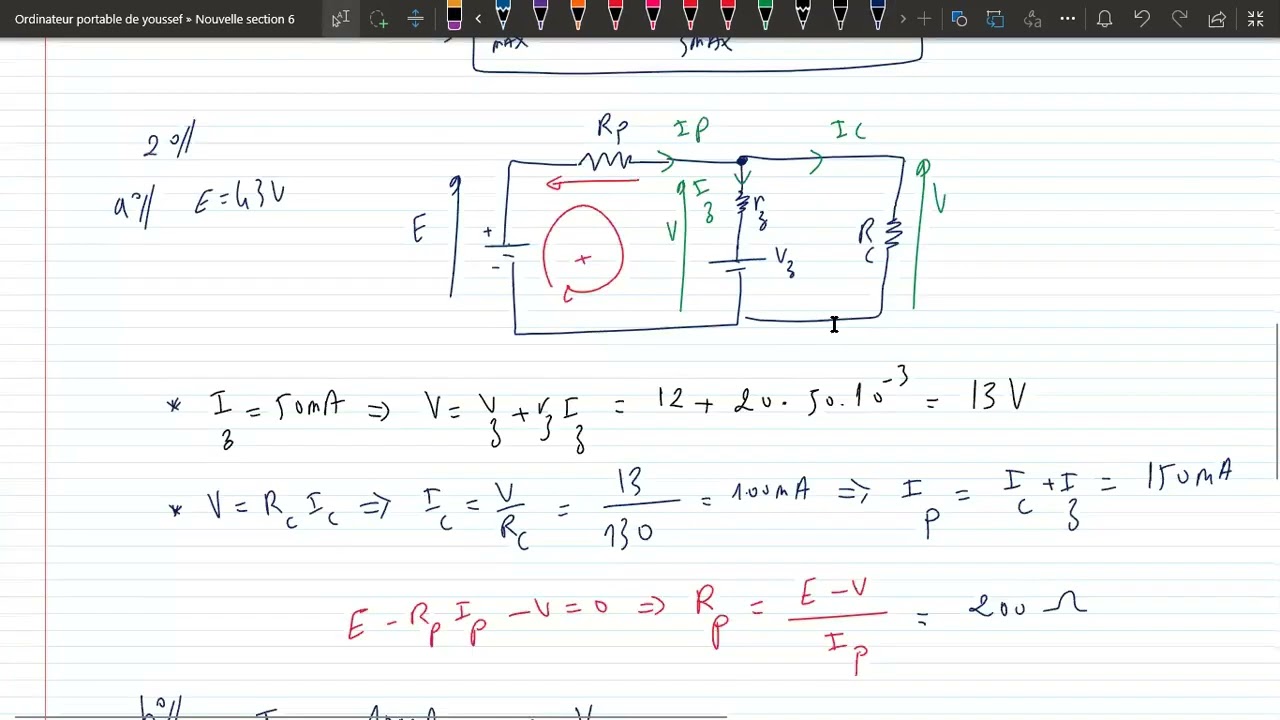 Ordinateur portable de youssef » Nouvelle section 6
MAX 3MAX
2°//
a°// E = 43V
Rp IP IC
E + - + V Iz rz Vz Rc V
* Iz = 50mA => V = Vz + rz Iz = 12 + 20 . 50.10^-3 = 13 V
* V = Rc Ic => Ic = V/Rc = 13/130 = 100mA => Ip = Ic + Iz = 150mA
E - Rp Ip - V = 0 => Rp = (E - V)/Ip = 200 Ω
b°//